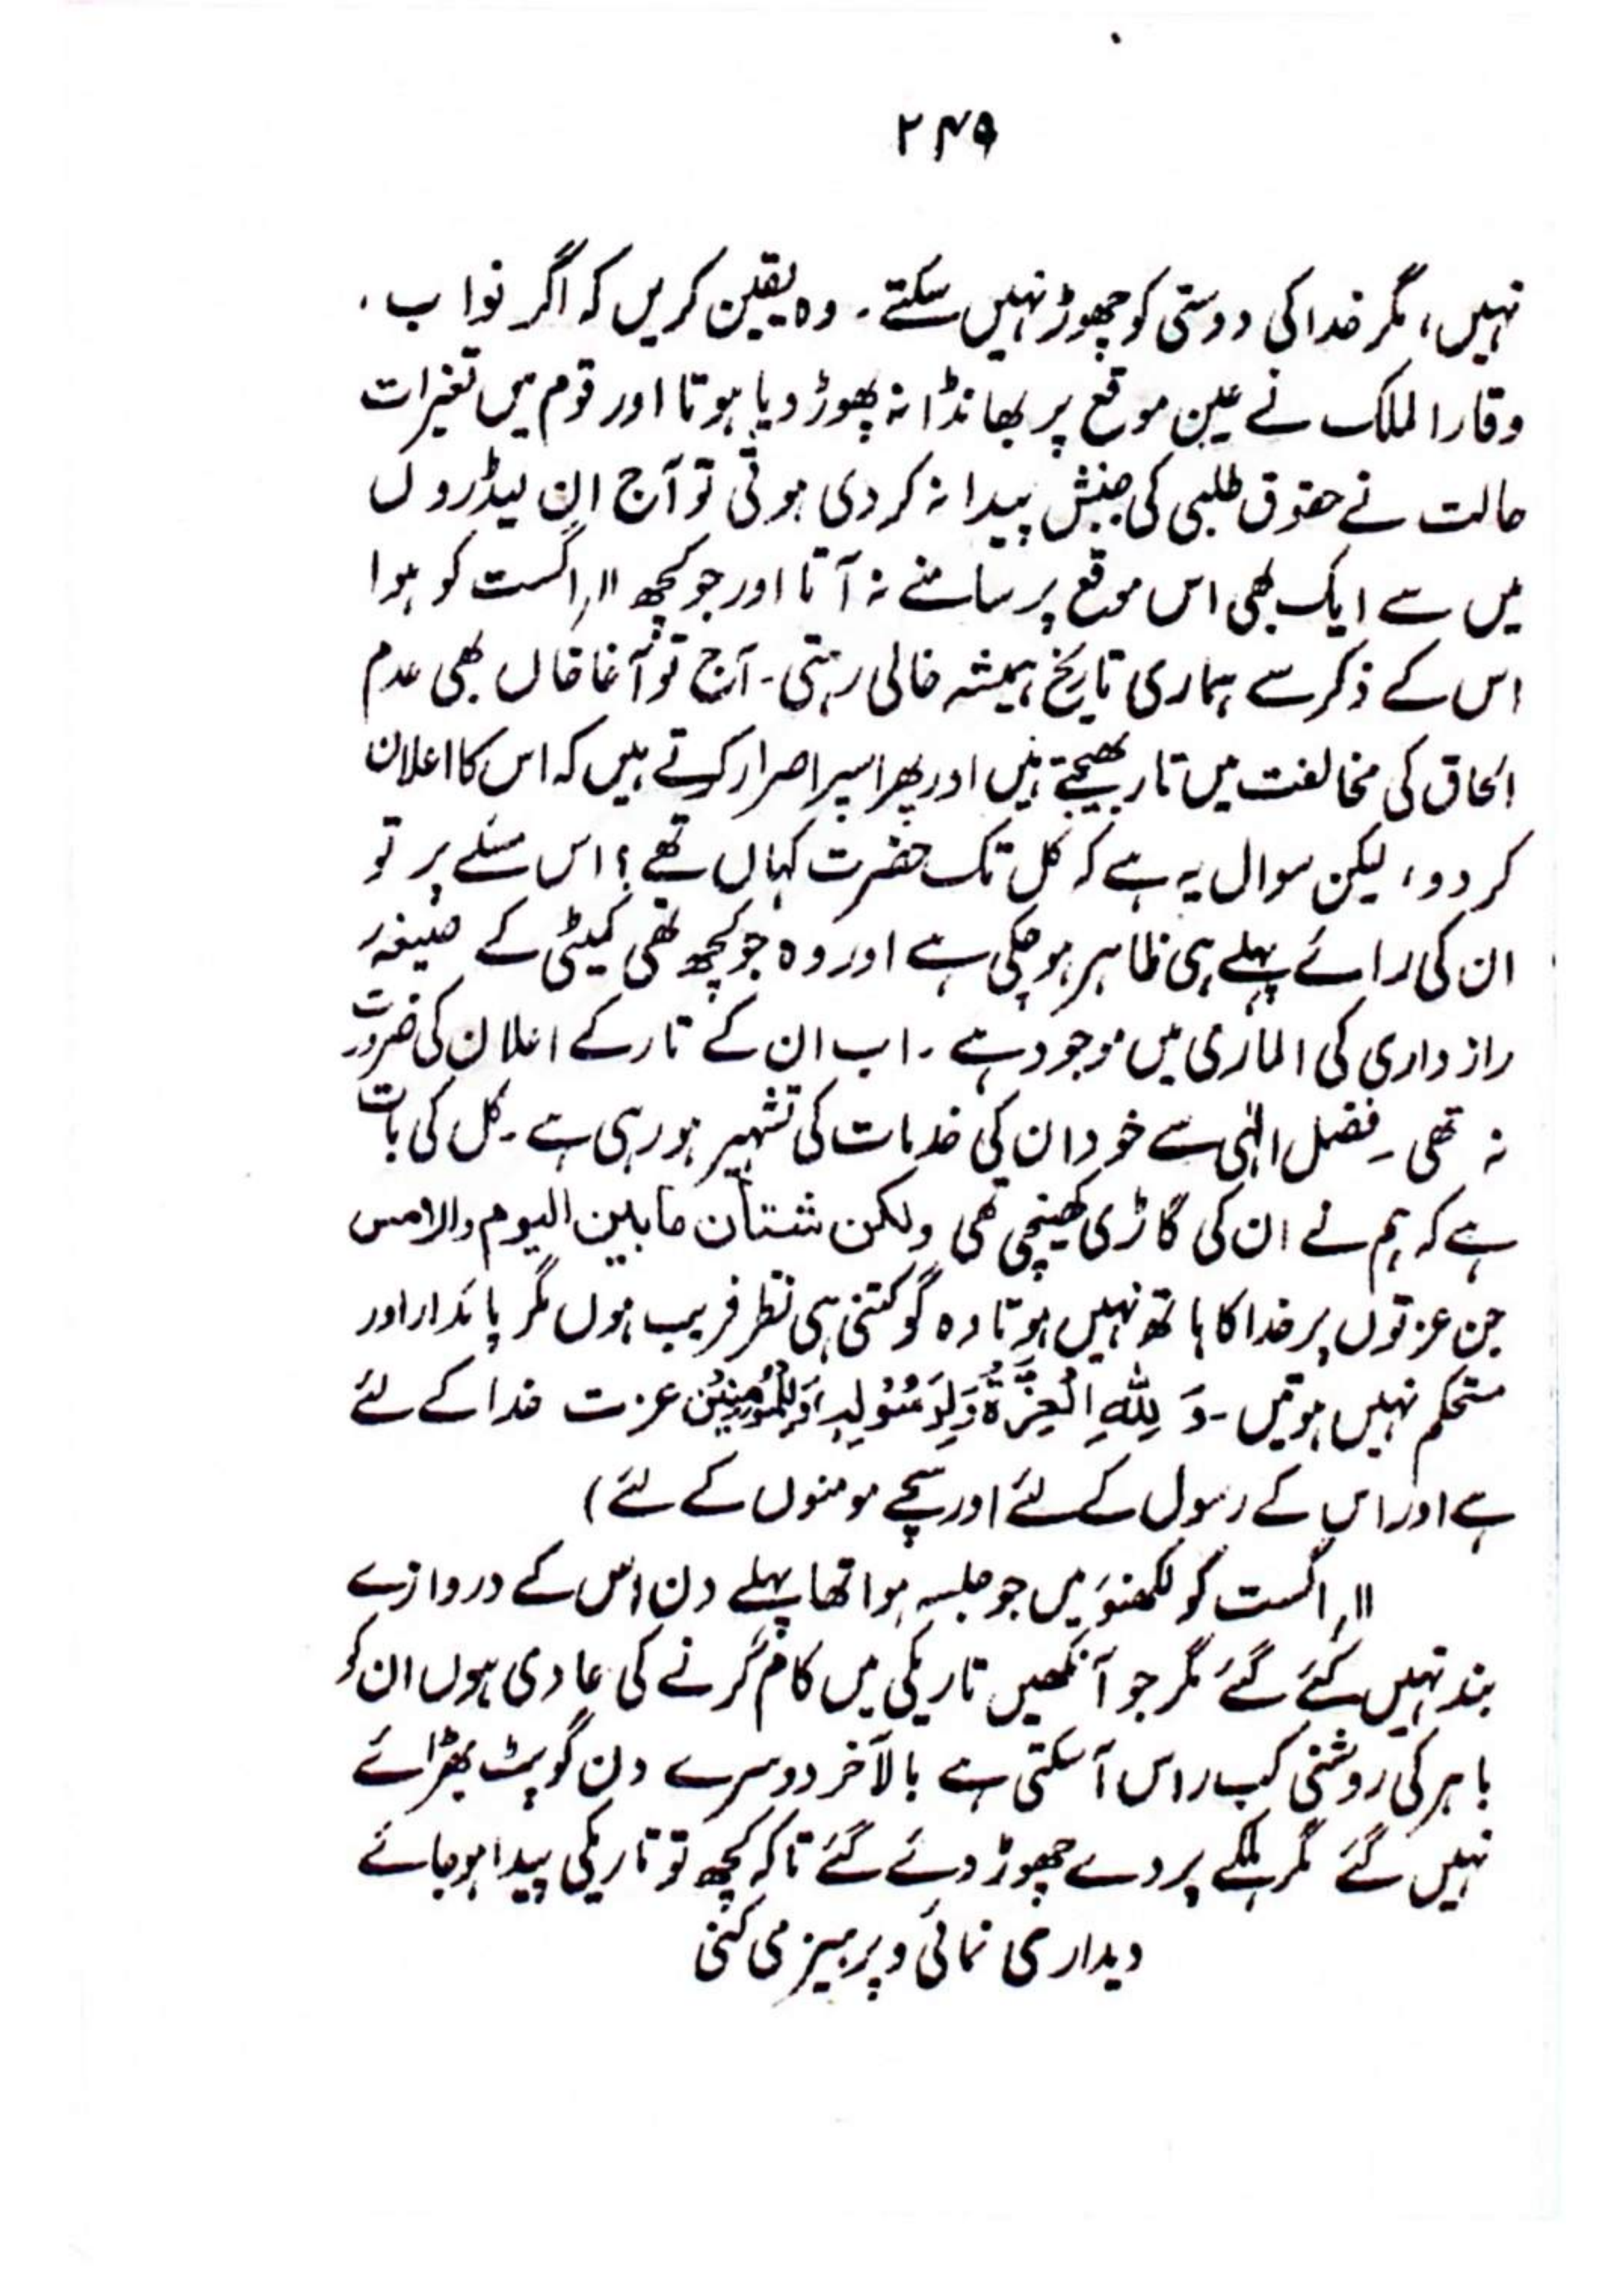 ۲۴۹
نہیں، مگر خدا کی دوستی کو چھوڑ نہیں سکتے۔ وہ یقین کریں کہ اگر نواب
وقار الملک نے عین موقع پر بھانڈا نہ پھوڑ دیا ہوتا اور قوم میں تغیرات
حالت نے حقوق طلبی کی جنبش پیدا نہ کر دی ہوتی تو آج ان لیڈروں
میں سے ایک بھی اس موقع پر سامنے نہ آتا اور جو کچھ ۱۱؍ اگست کو ہوا
اس کے ذکر سے ہماری تاریخ ہمیشہ خالی رہتی۔ آج تو آغا خاں بھی عدم
الحاق کی مخالفت میں تار بھیجتے ہیں اور پھر اسپر اصرار کرتے ہیں کہ اس کا اعلان
کر دو، لیکن سوال یہ ہے کہ کل تک حضرت کہاں تھے؟ اس مسئلے پر تو
ان کی رائے پہلے ہی ظاہر ہو چکی ہے اور وہ جو کچھ تھی کمیٹی کے صیغہ
راز داری کی الماری میں موجود ہے۔ اب ان کے تار کے اعلان کی ضرورت
نہ تھی۔ فضل الٰہی سے خود ان کی خدمات کی تشہیر ہو رہی ہے۔ کل کی بات
ہے کہ ہم نے ان کی گاڑی کھینچی تھی ولکن شتان مابین الیوم والامس
جن عزتوں پر خدا کا ہاتھ نہیں ہوتا وہ گو کتنی ہی نظر فریب ہوں مگر پائدار اور
مستحکم نہیں ہوتیں۔ وَ لِلّٰہِ الْعِزَّةُ وَلِرَسُوْلِہٖ وَلِلْمُؤْمِنِیْنَ عزت خدا کے لئے
ہے اور اس کے رسول کے لئے اور سچے مومنوں کے لئے)
۱۱؍ اگست کو لکھنؤ میں جو جلسہ ہوا تھا پہلے دن اس کے دروازے
بند نہیں کئے گئے مگر جو آنکھیں تاریکی میں کام کرنے کی عادی ہوں ان کو
باہر کی روشنی کب راس آ سکتی ہے بالآخر دوسرے دن گو پٹ بھڑائے
نہیں گئے مگر ہلکے پردے چھوڑ دئے گئے تاکہ کچھ تو تاریکی پیدا ہو جائے
دیدار می نمائی و پرہیز می کنی